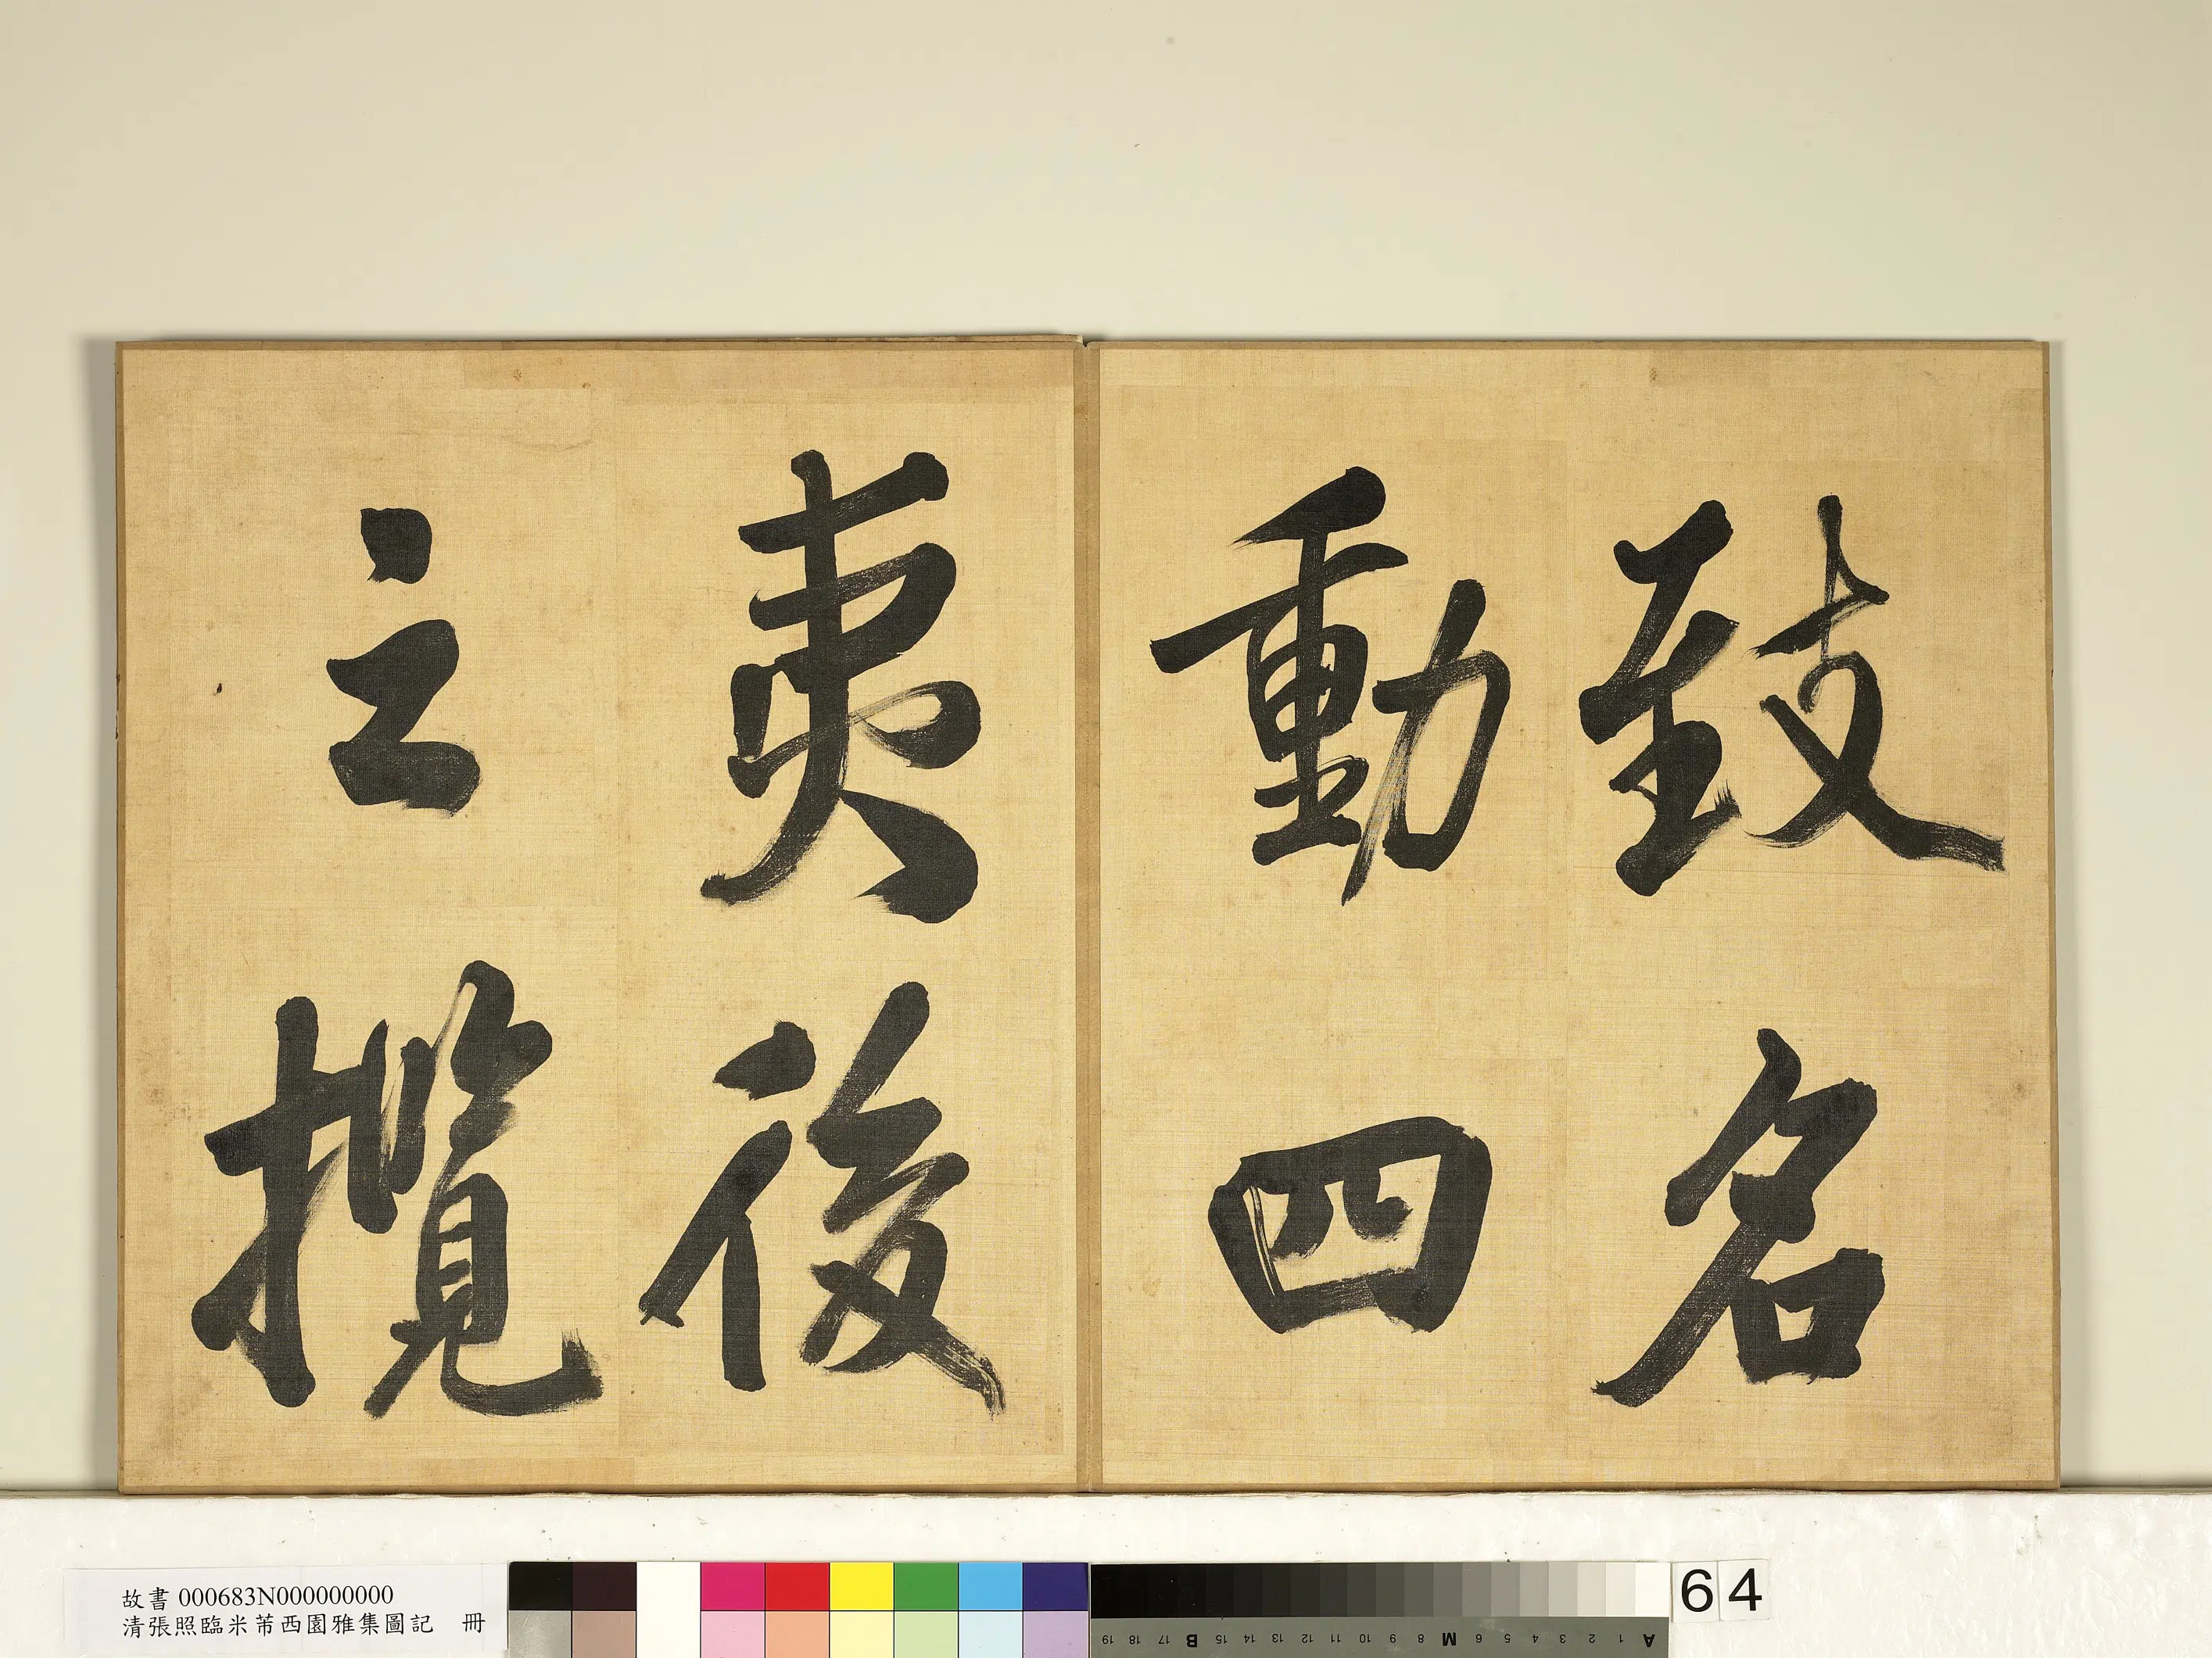 致名
動四
夷後
之攬
故書 000683N000000000
清張照臨米芾西園雅集圖記 冊
64
A 1 2 3 4 5 6 7 M 8 9 10 11 12 13 14 15 B 17 18 19